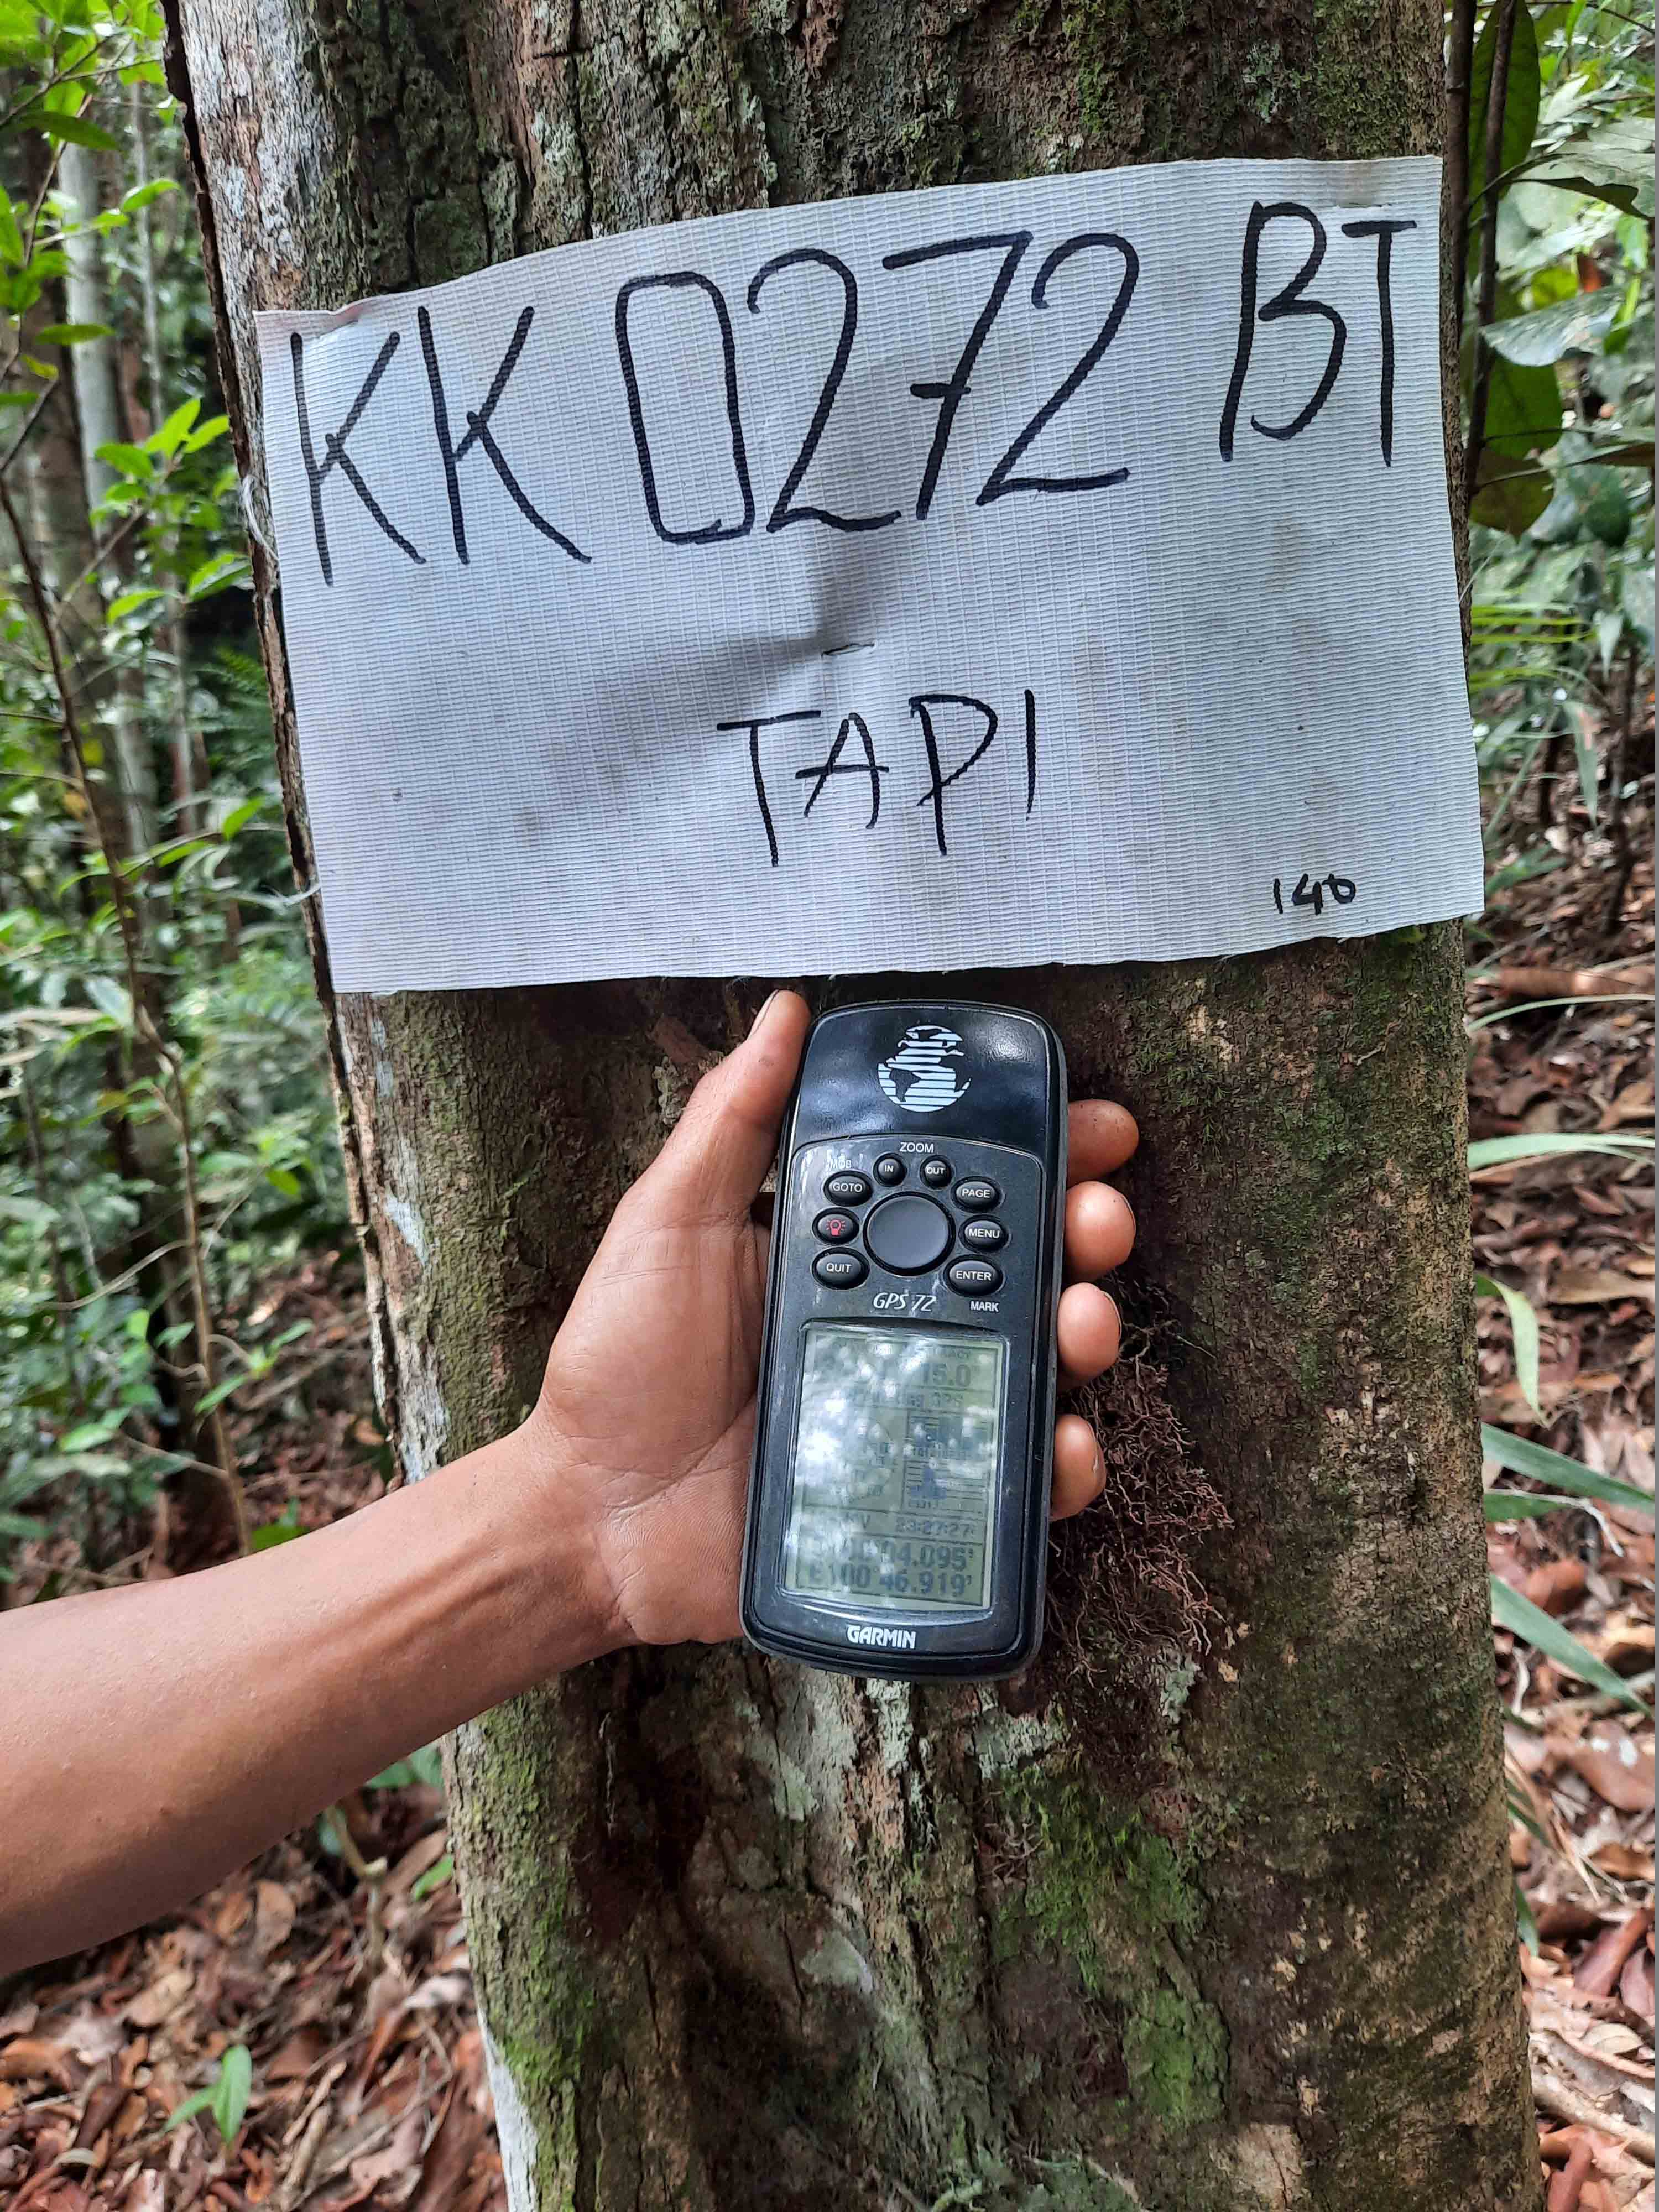 KK 0272 BT
TAPI
140
ZOOM
IN OUT
MOB
GOTO PAGE
MENU
QUIT ENTER
GPS 72 MARK
15.0
23:27:27
04.095'
E100°46.919'
GARMIN